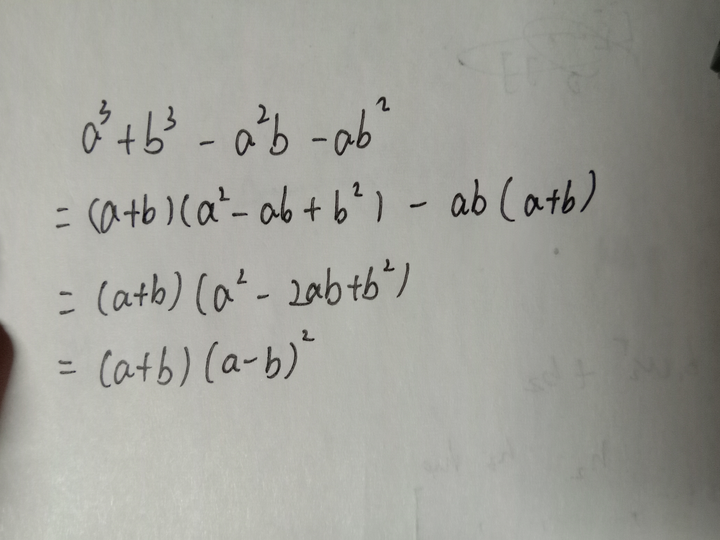 a³+b³-a²b-ab²
=(a+b)(a²-ab+b²)-ab(a+b)
=(a+b)(a²-2ab+b²)
=(a+b)(a-b)²